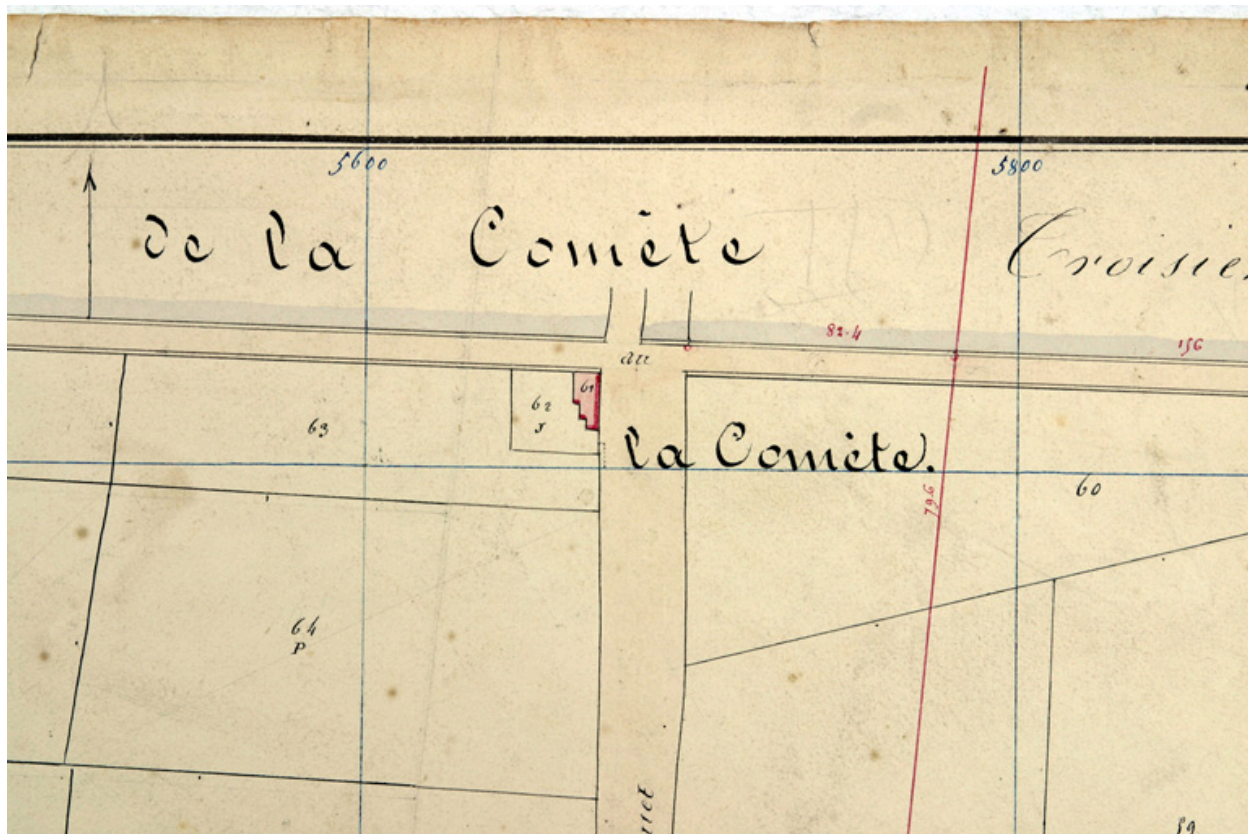 5600
5800
de la Comète
82.4
156
au
61
62
J
63
la Comète.
60
796
64
P
59